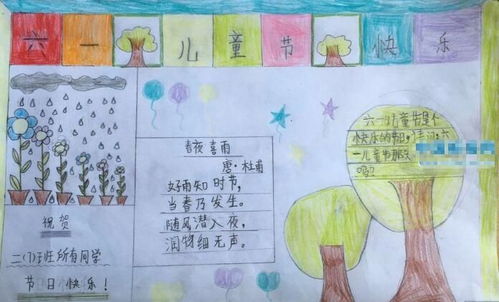 六一儿童节快乐
春夜喜雨
唐·杜甫
好雨知时节,
当春乃发生。
随风潜入夜,
润物细无声。
六一儿童节是个
快乐的节日,
一儿童节那天
吗?
祝贺
二(1)班所有同学
节日快乐!